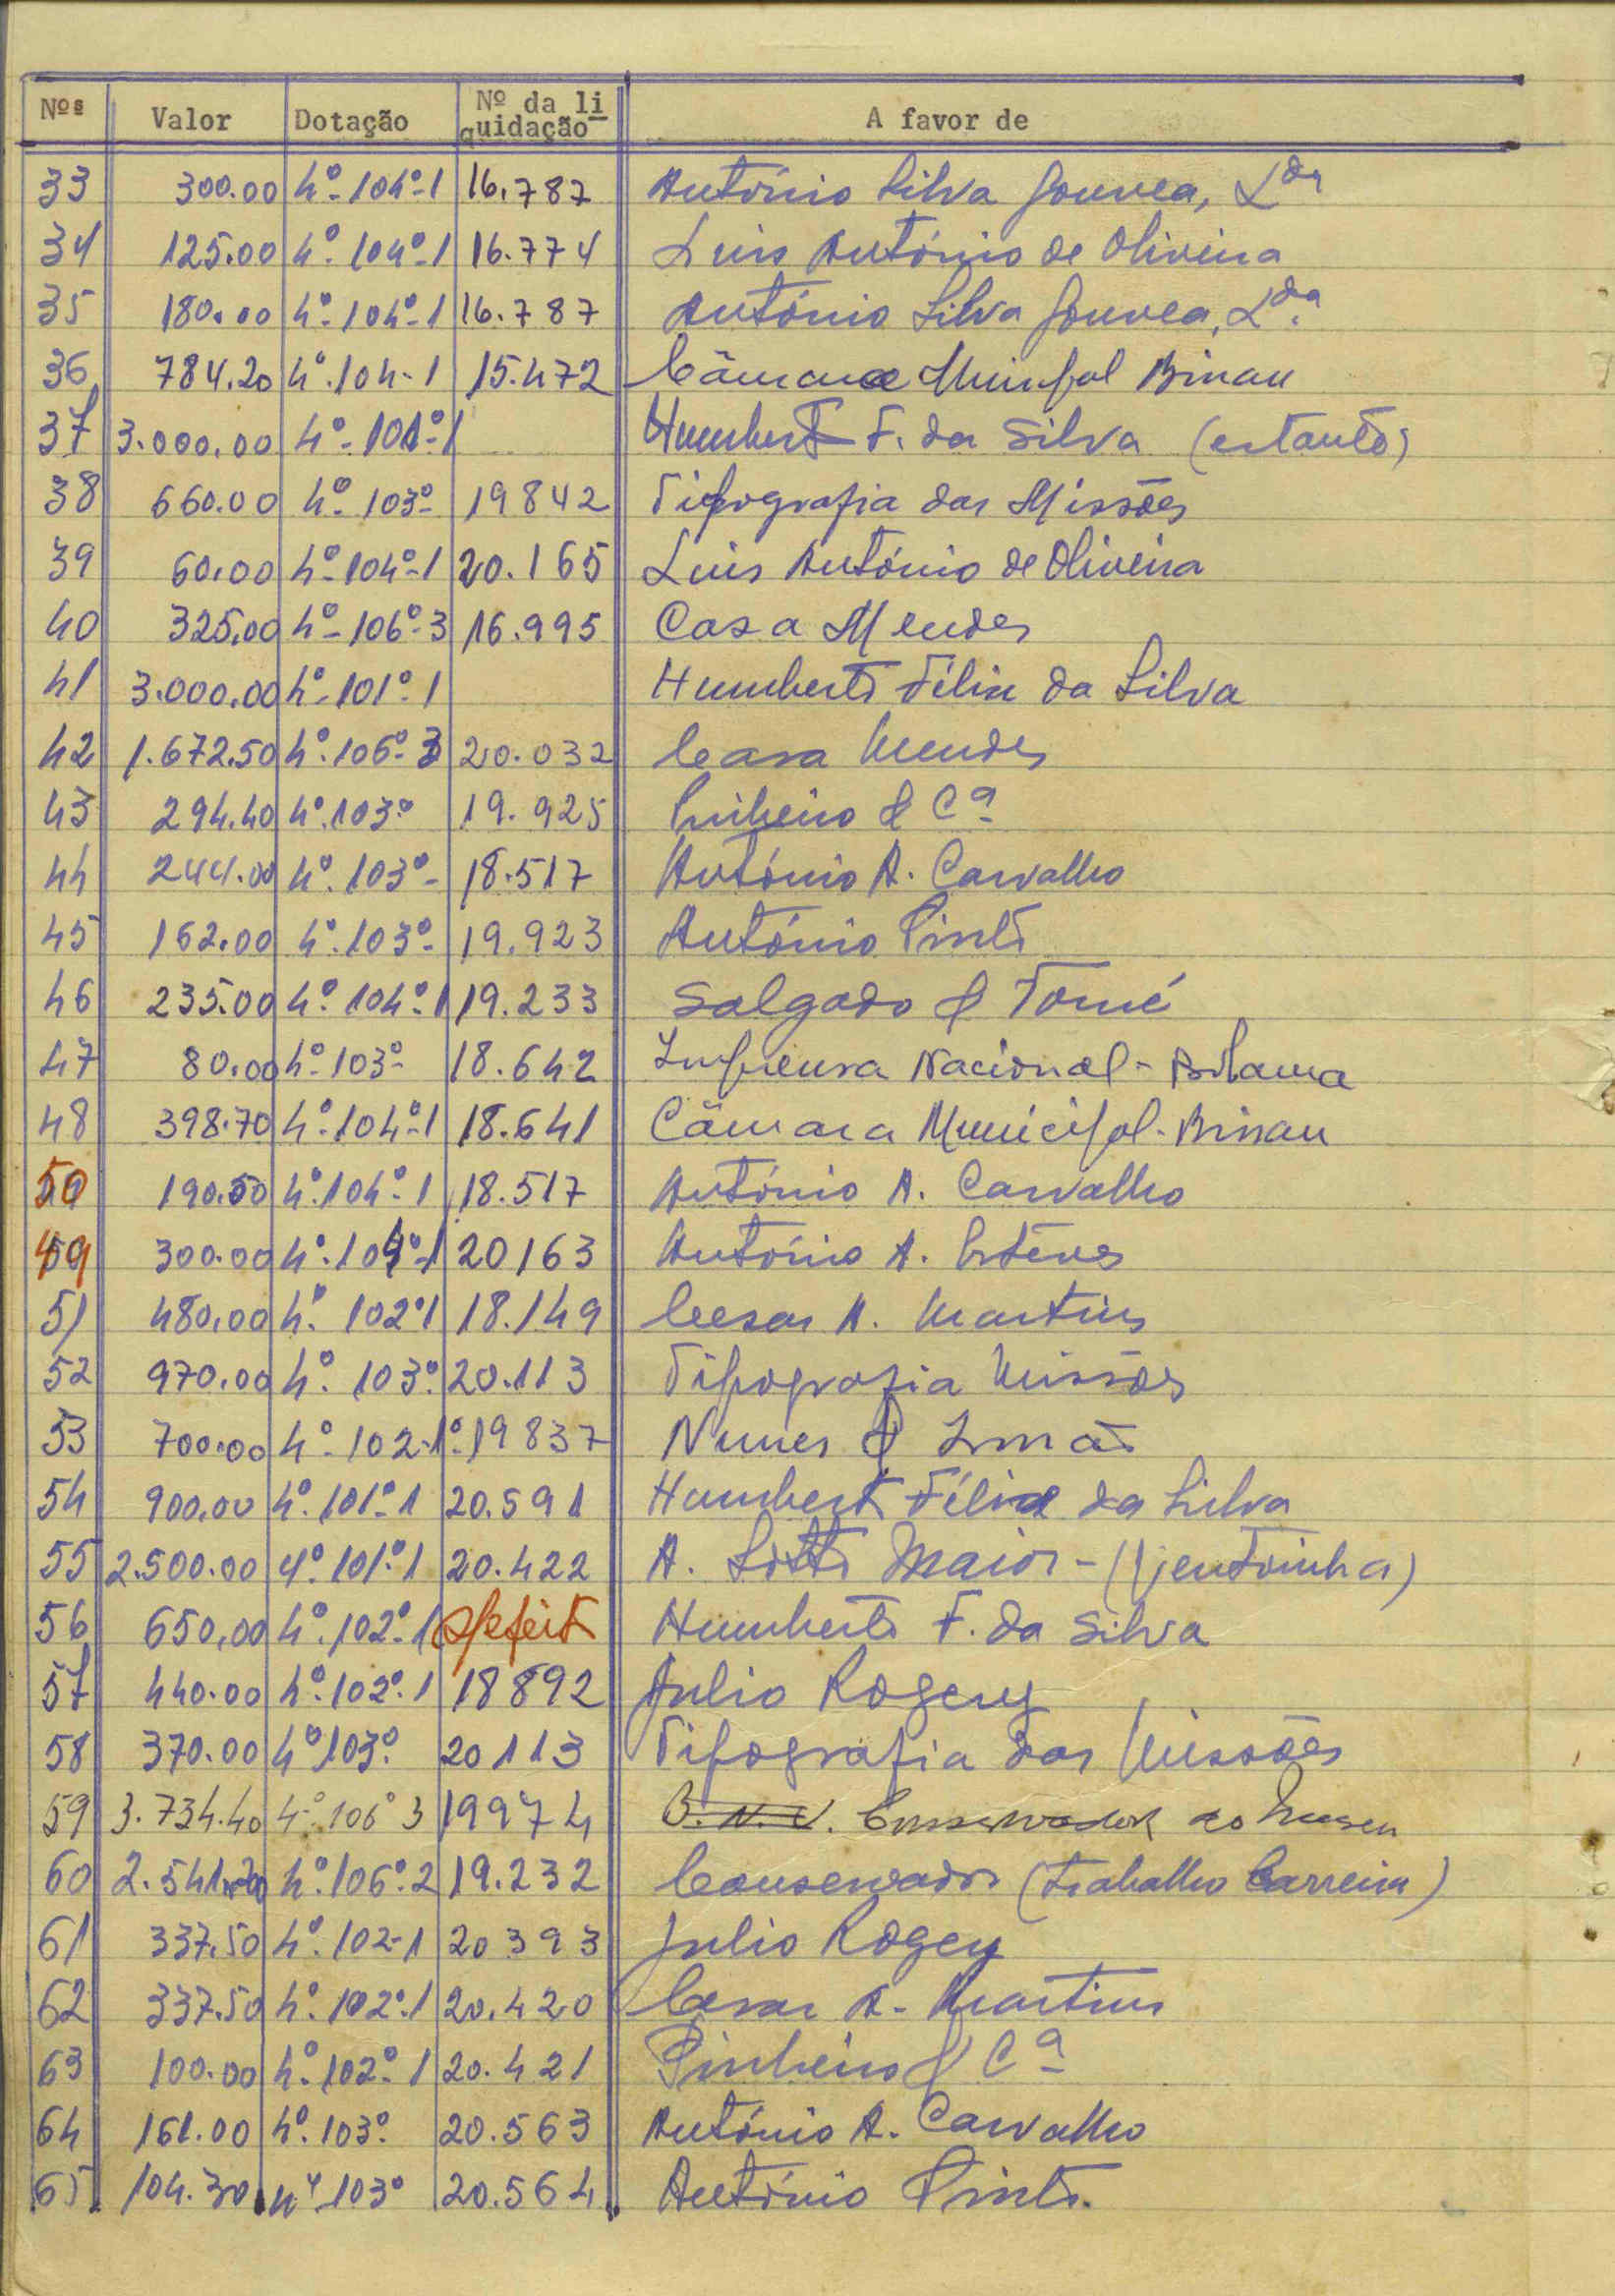 Nºs Valor Dotação Nº da liquidação A favor de
33 300.00 4º-104º-1 16.787 António Silva Gouvea, Lda
34 125.00 4º-104º-1 16.774 Luis António de Oliveira
35 180.00 4º-104º-1 16.787 António Silva Gouvea, Lda.
36 784.20 4º.104-1 15.472 Câmara Municipal Bissau
37 3.000.00 4º-101º-1 Humberto F. da Silva (estantes)
38 660.00 4º-103º- 19842 Tipografia das Missões
39 60.00 4º-104º-1 20.165 Luis António de Oliveira
40 325.00 4º-106º-3 16.995 Casa Mendes
41 3.000.00 4º-101º-1 Humberto Félix da Silva
42 1.672.50 4º.106º-3 20.032 Casa Mendes
43 294.40 4º.103º 19.925 Pinheiro & Cª
44 244.00 4º.103º- 18.517 António A. Carvalho
45 162.00 4º.103º- 19.923 António Pinto
46 235.00 4º.104º-1 19.233 Salgado & Tomé
47 80.00 4º-103º- 18.642 Imprensa Nacional - Bolama
48 398.70 4º-104º-1 18.641 Câmara Municipal - Bissau
50 190.50 4º.104º-1 18.517 António A. Carvalho
49 300.00 4º.104º-1 20163 António A. Esteves
51 480.00 4º. 102º1 18.149 Cesar A. Martins
52 970.00 4º. 103º. 20.113 Tipografia Missões
53 700.00 4º- 102-1º- 19837 Nunes & Irmão
54 900.00 4º.101º-1 20.591 Humberto Félix da Silva
55 2.500.00 4º.101º.1 20.422 A. Sotto Maior - (Ventoinha)
56 650,00 4º.102º-1 s/efeito Humberto F. da Silva
57 440.00 4º.102º.1 18892 Julio Rogery
58 370.00 4º103º. 20113 Tipografia das Missões
59 3.734.40 4º-106º3 19974 B.N.U. Conservador do Museu
60 2.541.20 4º.106º.2 19.232 Conservador (trabalho Carreira)
61 337.50 4º.102-1 20393 Julio Rogery
62 337.50 4º.102º.1 20.420 Cesar A. Martins
63 100.00 4º.102º-1 20.421 Pinheiro & Cª
64 161.00 4º.103º. 20.563 António A. Carvalho
65 104.30 4º 103º 20.564 António Pinto.